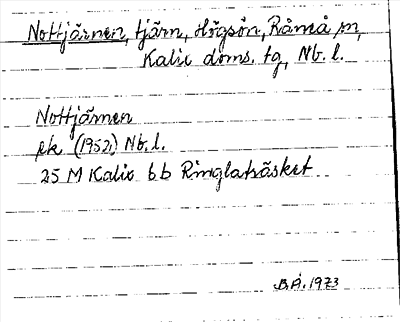 Nottjärnen, tjärn, Högsön, Råneå sn,
Kalix doms. tg, Nb. l.
Nottjärnen
ek (1952) Nb. l.
25 M Kalix 6b Ringlatsäsket
B.Å. 1973